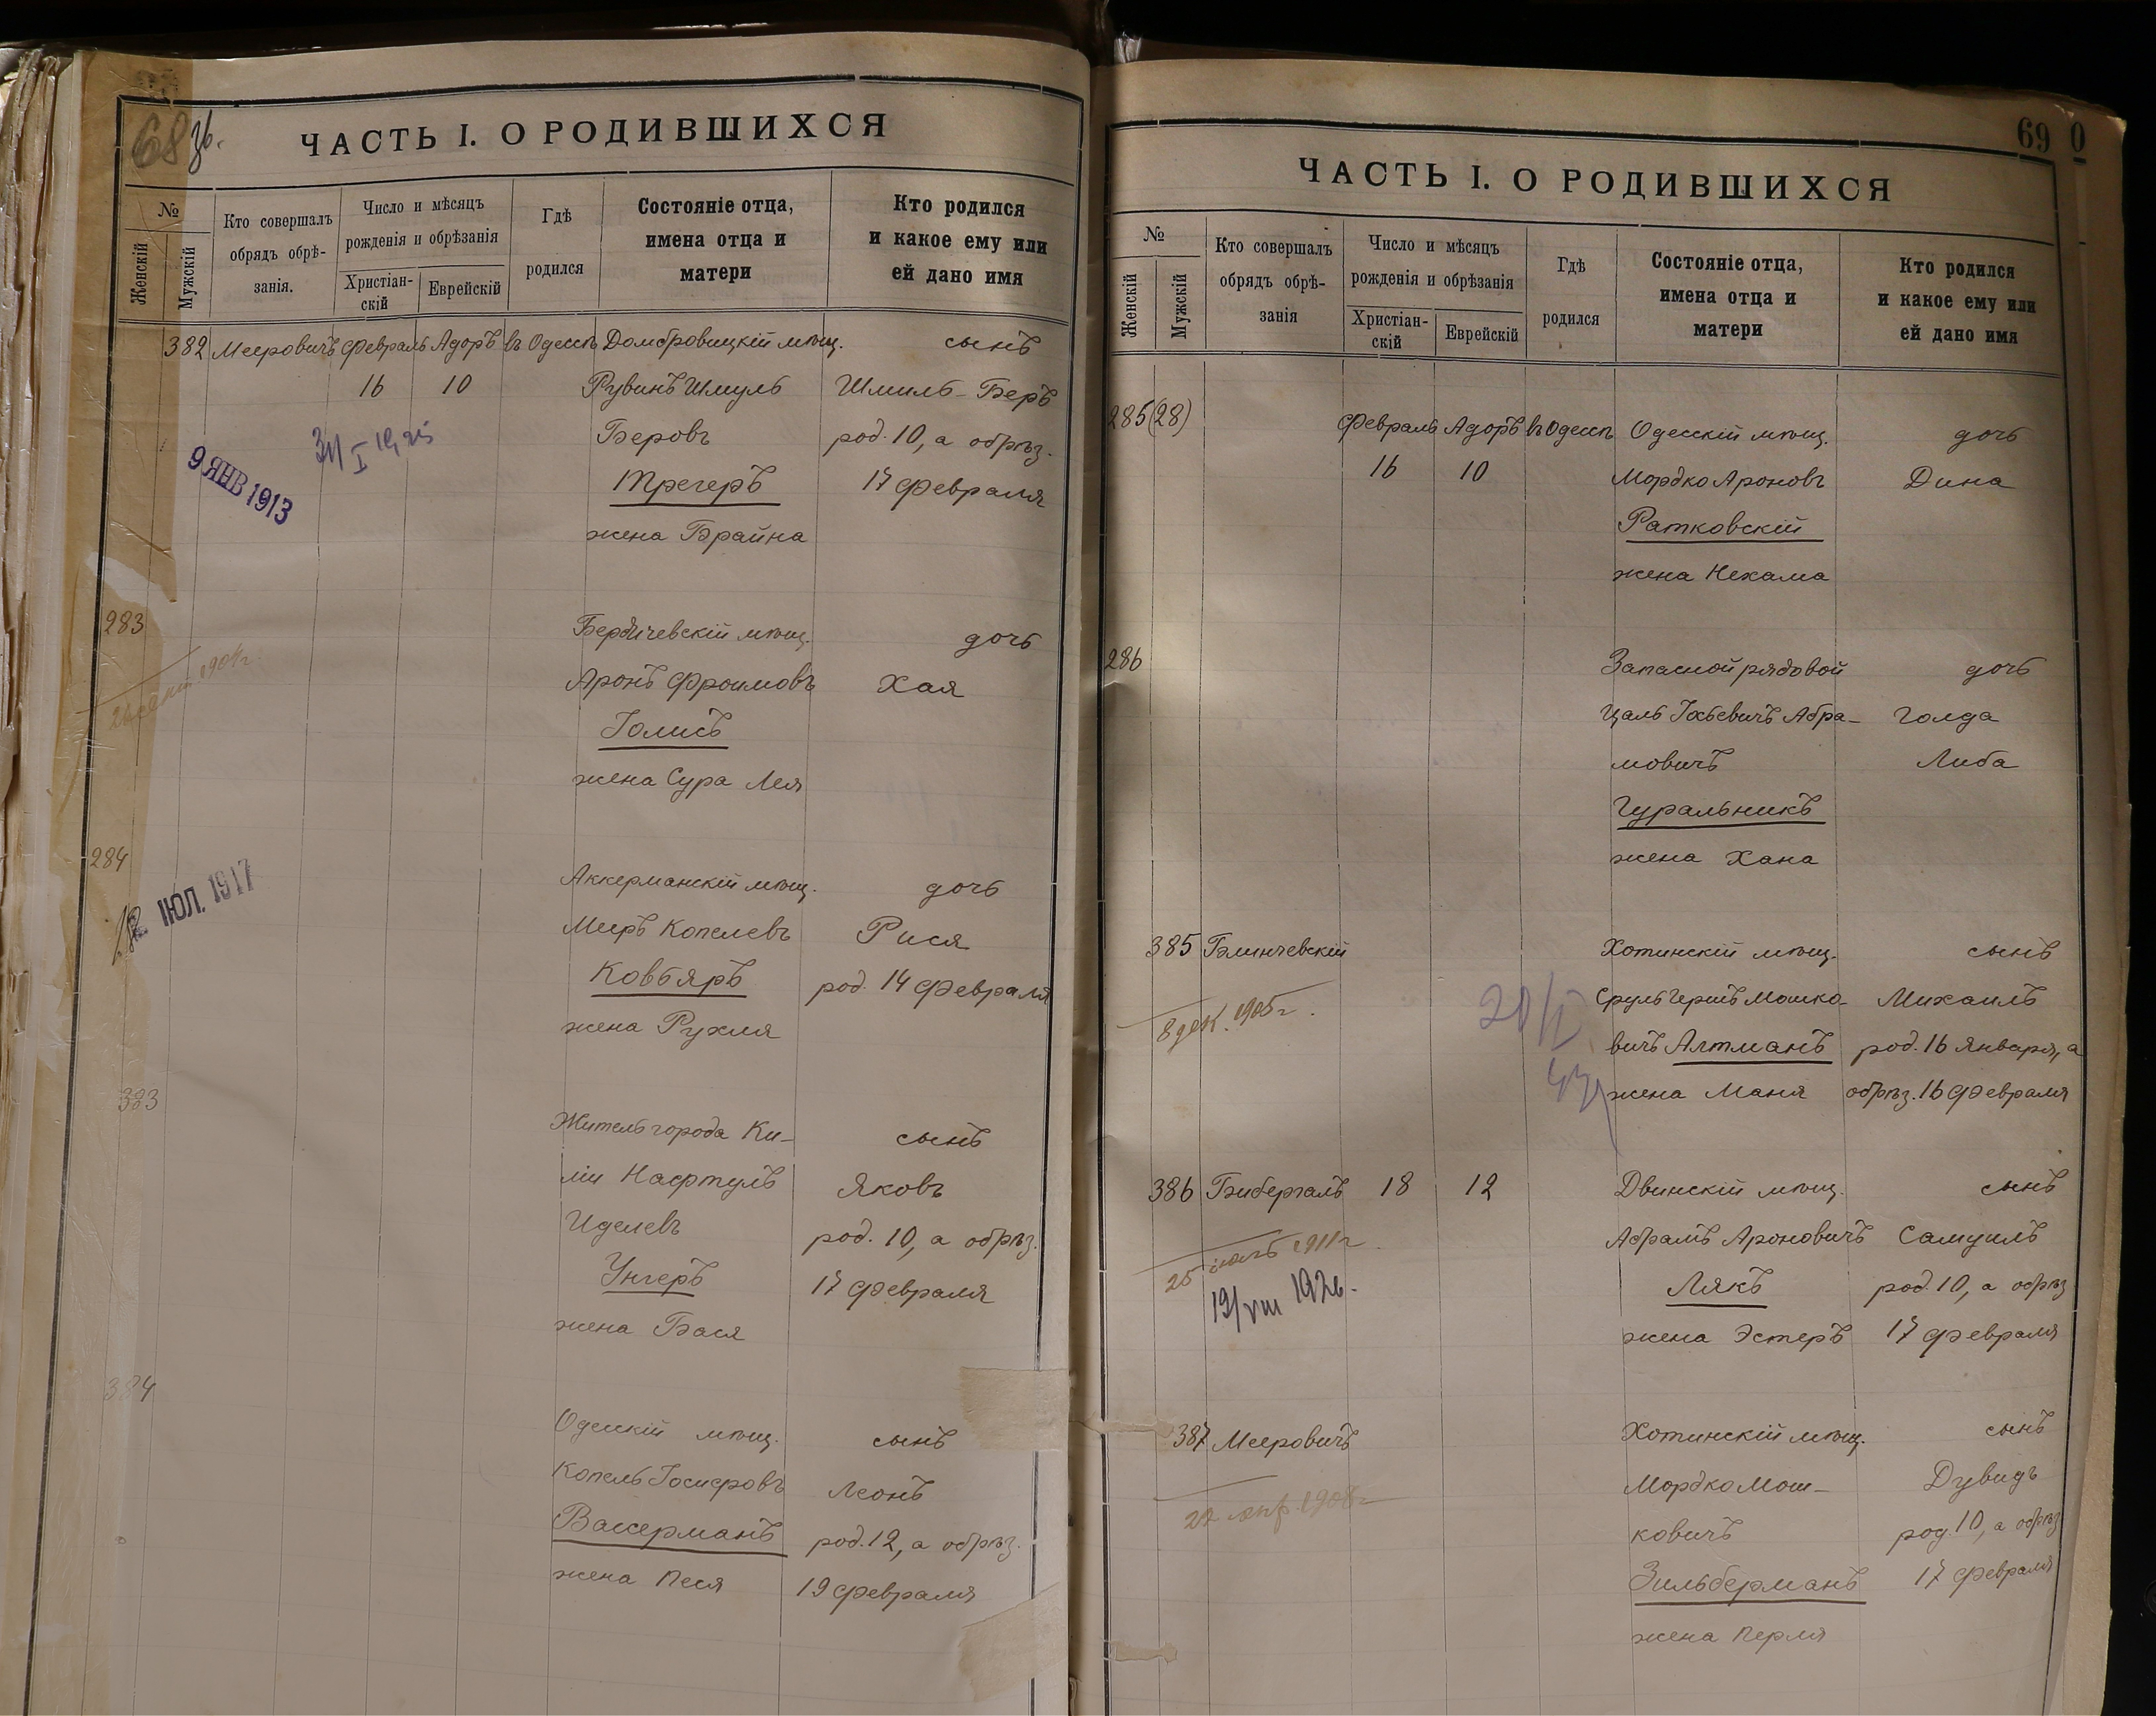 68 об.
ЧАСТЬ I. О РОДИВШИХСЯ
№
Женскій
Мужскій
Кто совершалъ
обрядъ обрѣ-
занія.
Число и мѣсяцъ
рожденія и обрѣзанія
Христіан-
скій
Еврейскій
Гдѣ
родился
Состояніе отца,
имена отца и
матери
Кто родился
и какое ему или
ей дано имя
382 Мееровичъ Февраль Адоръ въ Одессѣ Домбровицкій мѣщ. сынъ
16 10 Рувинъ Шмуль Шмиль-Беръ
Беровъ род. 10, а обрѣз.
9 ЯНВ 1913
Трегеръ 17 Февраля
жена Брайна
283 Бердичевскій мѣщ. дочь
1904 г.
Аронъ Фроимовъ Хая
Голисъ
жена Сура Лея
284 Аккерманскій мѣщ. дочь
12 ІЮЛ. 1917
Мееръ Копелевъ Рися
Ковбяръ род. 14 Февраля
жена Рухля
383 Житель города Ки-
сынъ
ліи Нафтуль Яковъ
Иделевъ род. 10, а обрѣз.
Унгеръ 17 Февраля
жена Бася
384 Одесскій мѣщ. сынъ
Копель Іосифовъ Леонъ
Вассерманъ род. 12, а обрѣз.
жена Песя 19 Февраля
69 0
ЧАСТЬ I. О РОДИВШИХСЯ
№
Женскій
Мужскій
Кто совершалъ
обрядъ обрѣ-
занія
Число и мѣсяцъ
рожденія и обрѣзанія
Христіан-
скій
Еврейскій
Гдѣ
родился
Состояніе отца,
имена отца и
матери
Кто родился
и какое ему или
ей дано имя
285 (28) Февраль Адоръ въ Одессѣ Одесскій мѣщ. дочь
16 10 Мордко Ароновъ Дина
Ратковскій
жена Нехама
286 Запасной рядовой дочь
Цаль Абра- Голда
мовичъ Либа
Гуральникъ
жена Хана
385 Блинчевскій Хотинскій мѣщ. сынъ
8 дек. 1905 г.
Сруль Гершъ Мошко- Михаилъ
вичъ Алтманъ род. 16 Января, а
жена Маня обрѣз. 16 Февраля
386 Бибергалъ 18 12 Двинскій мѣщ. сынъ
25 1911 г.
Абрамъ Ароновичъ Самуилъ
19/VIII 1926.
Лякъ род. 10, а обрѣз
жена Эстеръ 17 Февраля
387 Мееровичъ Хотинскій мѣщ. сынъ
22 1908 г.
Мордко Мош- Дувидъ
ковичъ род. 10, а обрѣз
Зильберманъ 17 Февраля
жена Перля